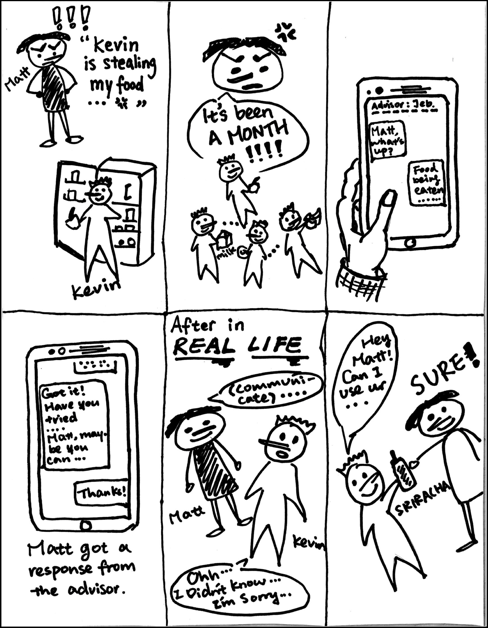 !!!
"Kevin
is stealing
my food
... "
Matt
Kevin
It's been
A MONTH
!!!!
milk
Advisor: Jeb.
Matt,
what's
up?
Food
being
eaten
......
Got it!
Have you
tried
....
Matt, may-
be you
can ...
Thanks!
Matt got a
response from
the advisor.
After in
REAL LIFE
(communi-
cate) ....
Matt
Kevin
Ohh...
I Didn't know...
I'm sorry...
Hey
Matt!
Can I
use ur
....
SURE!
SRIRACHA